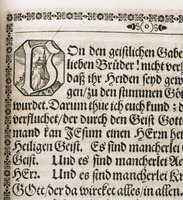 VOn den geistlichen Gabe
lieben Brüder! nicht ver
daß ihr Heiden seyd gewe
gen/ zu den stummen Göt
wurdet. Darum thue ich euch kund: d
verfluchet/ der durch den Geist Gott
mand kan JEsum einen HErrn he
Heiligen Geist. Es sind mancherley
Geist. Und es sind mancherley Ae
HErr. Und es sind mancherley Kr
GOtt/ der da wircket alles/ in allen.